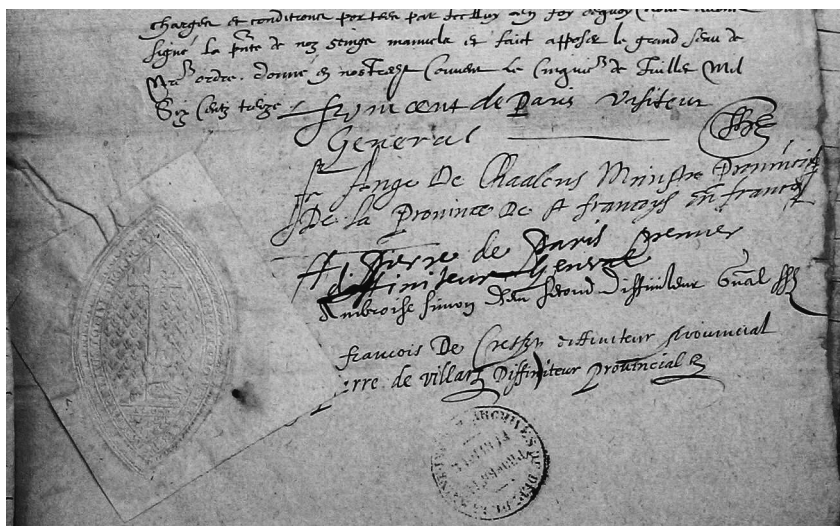 charges et conditions portees par icelluy en foy dequoy nous avons
signé la pnte de noz seings manuels et faict apposer le grand seau de
nre ordre. donné en nostre Couvent le Cinquie de Juillet Mil
Six Centz treze
vincent de Paris Visiteur
General
fr Ange De Chaalons Ministre Provincial
De la Province De st françoys en france
ff Pierre de Paris premier
diffiniteur General
Ambroise Simon second diffiniteur Gnal
francois De Cressy diffiniteur provincial
erre de villars Diffiniteur Provincial
ARCHIVES DE